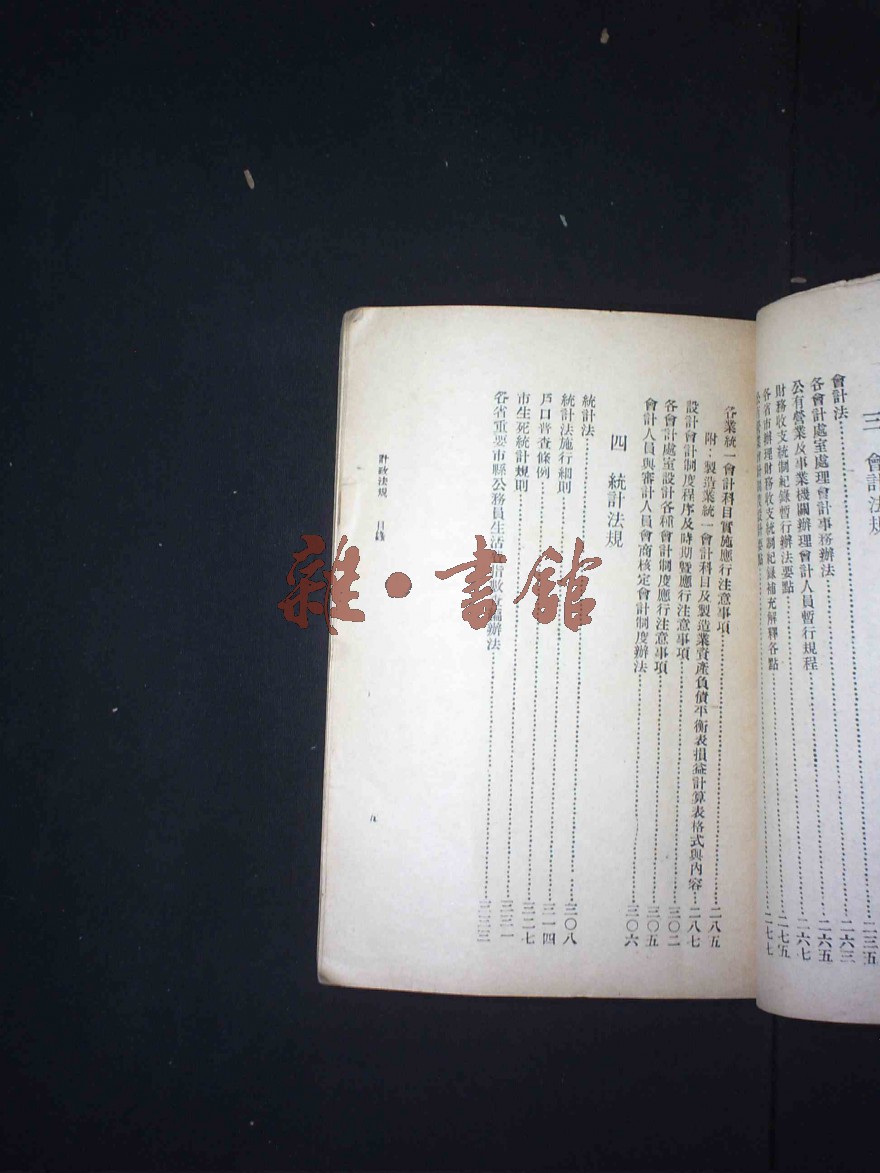 三 會計法規
會計法……二三五
各會計處室處理會計事務辦法……二六三
公有營業及事業機關辦理會計人員暫行規程……二六五
財務收支統制紀錄暫行辦法要點……二六七
各省市辦理財務收支統制紀錄補充解釋各點……二七五
……二七七
各業統一會計科目實施應行注意事項……二八五
附：製造業統一會計科目及製造業資產負債平衡表損益計算表格式與內容……二八七
設計會計制度程序及時期暨應行注意事項……三〇二
各會計處室設計各種會計制度應行注意事項……三〇五
會計人員與審計人員會商核定會計制度辦法……三〇六
四 統計法規
統計法……三〇八
統計法施行細則……三一四
戶口普查條例……三一七
市生死統計規則……三二一
各省重要市縣公務員生活費指數查編辦法……三二三
計政法規 目錄
五
雜·書館